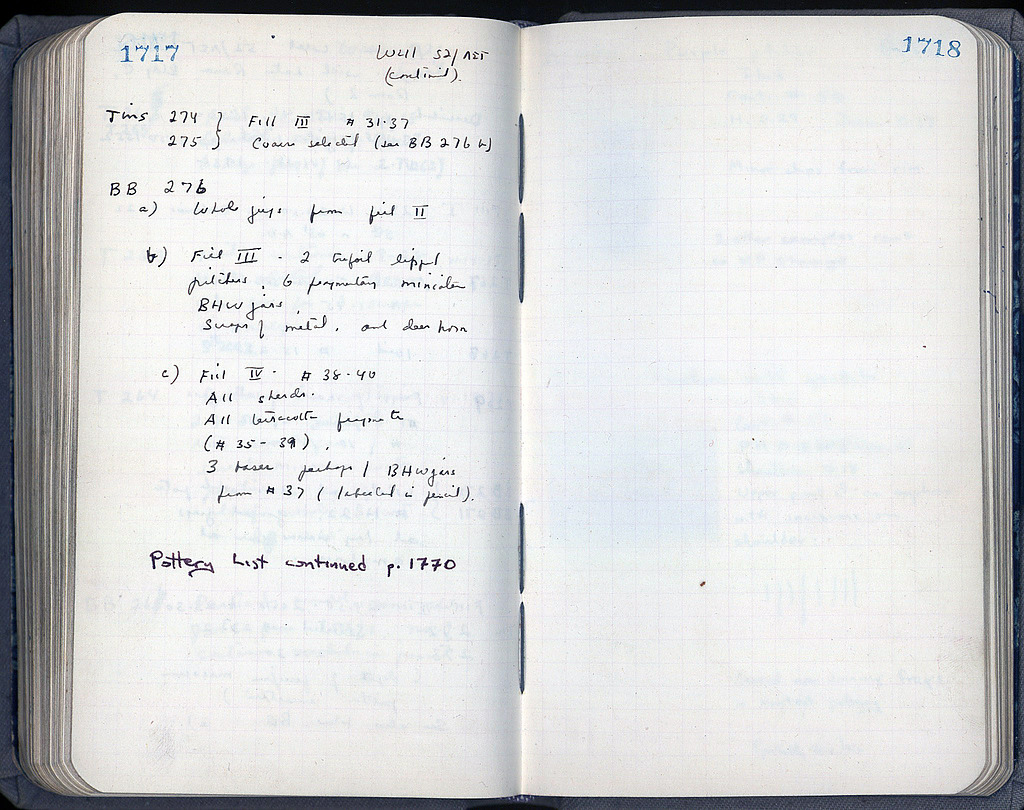 1717
Well 52/
(continued).
Tins 274 } Fill III # 31-37
275 } Coarse selected (see BB 276 b)
BB 276
a) Whole jugs from fill II
b) Fill III - 2 trefoil lipped
pitchers, 6 fragmentary miniature
BHW jars,
Scraps of metal, and deer horn
c) Fill IV - # 38-40
All sherds.
All terracotta fragments
(# 35 - 39).
3 bases perhaps / BHW jars
from # 37 (labelled in pencil).
Pottery List continued p. 1770
1718